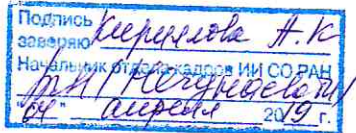 Подпись Кириллова А.К
заверяю
Начальник отдела кадров ИИ СО РАН
"04" апреля 2019 г.